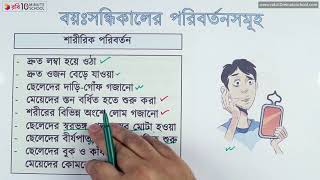 রবি 10 MINUTE SCHOOL
বয়ঃসন্ধিকালের পরিবর্তনসমূহ
শারীরিক পরিবর্তন
- দ্রুত লম্বা হয়ে ওঠা
- দ্রুত ওজন বেড়ে যাওয়া
- ছেলেদের দাড়ি-গোঁফ গজানো
- মেয়েদের স্তন বর্ধিত হতে শুরু করা
- শরীরের বিভিন্ন অংশে লোম গজানো
- ছেলেদের স্বরভঙ্গ মোটা হওয়া
- ছেলেদের বীর্যপাত শুরু
ছেলেদের বুক ও
মেয়েদের